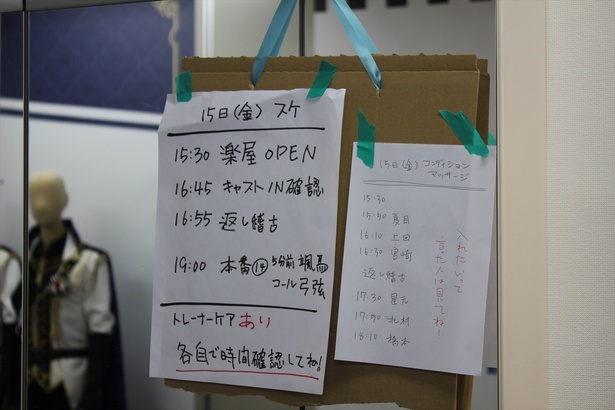 15日(金) スケ
15:30 楽屋 OPEN
16:45 キャスト IN 確認
16:55 返し稽古
19:00 本番⑭ 5分前 颯馬
コール 弓弦
トレーナーケア あり
各自で時間確認してね!
15日(金) コンディション
マッサージ
15:30
15:50 夏目
16:10 上田
16:30 宮崎
返し稽古
17:30 星元
17:50 北村
18:10 橋本
入れたいって
言った人は見てね!